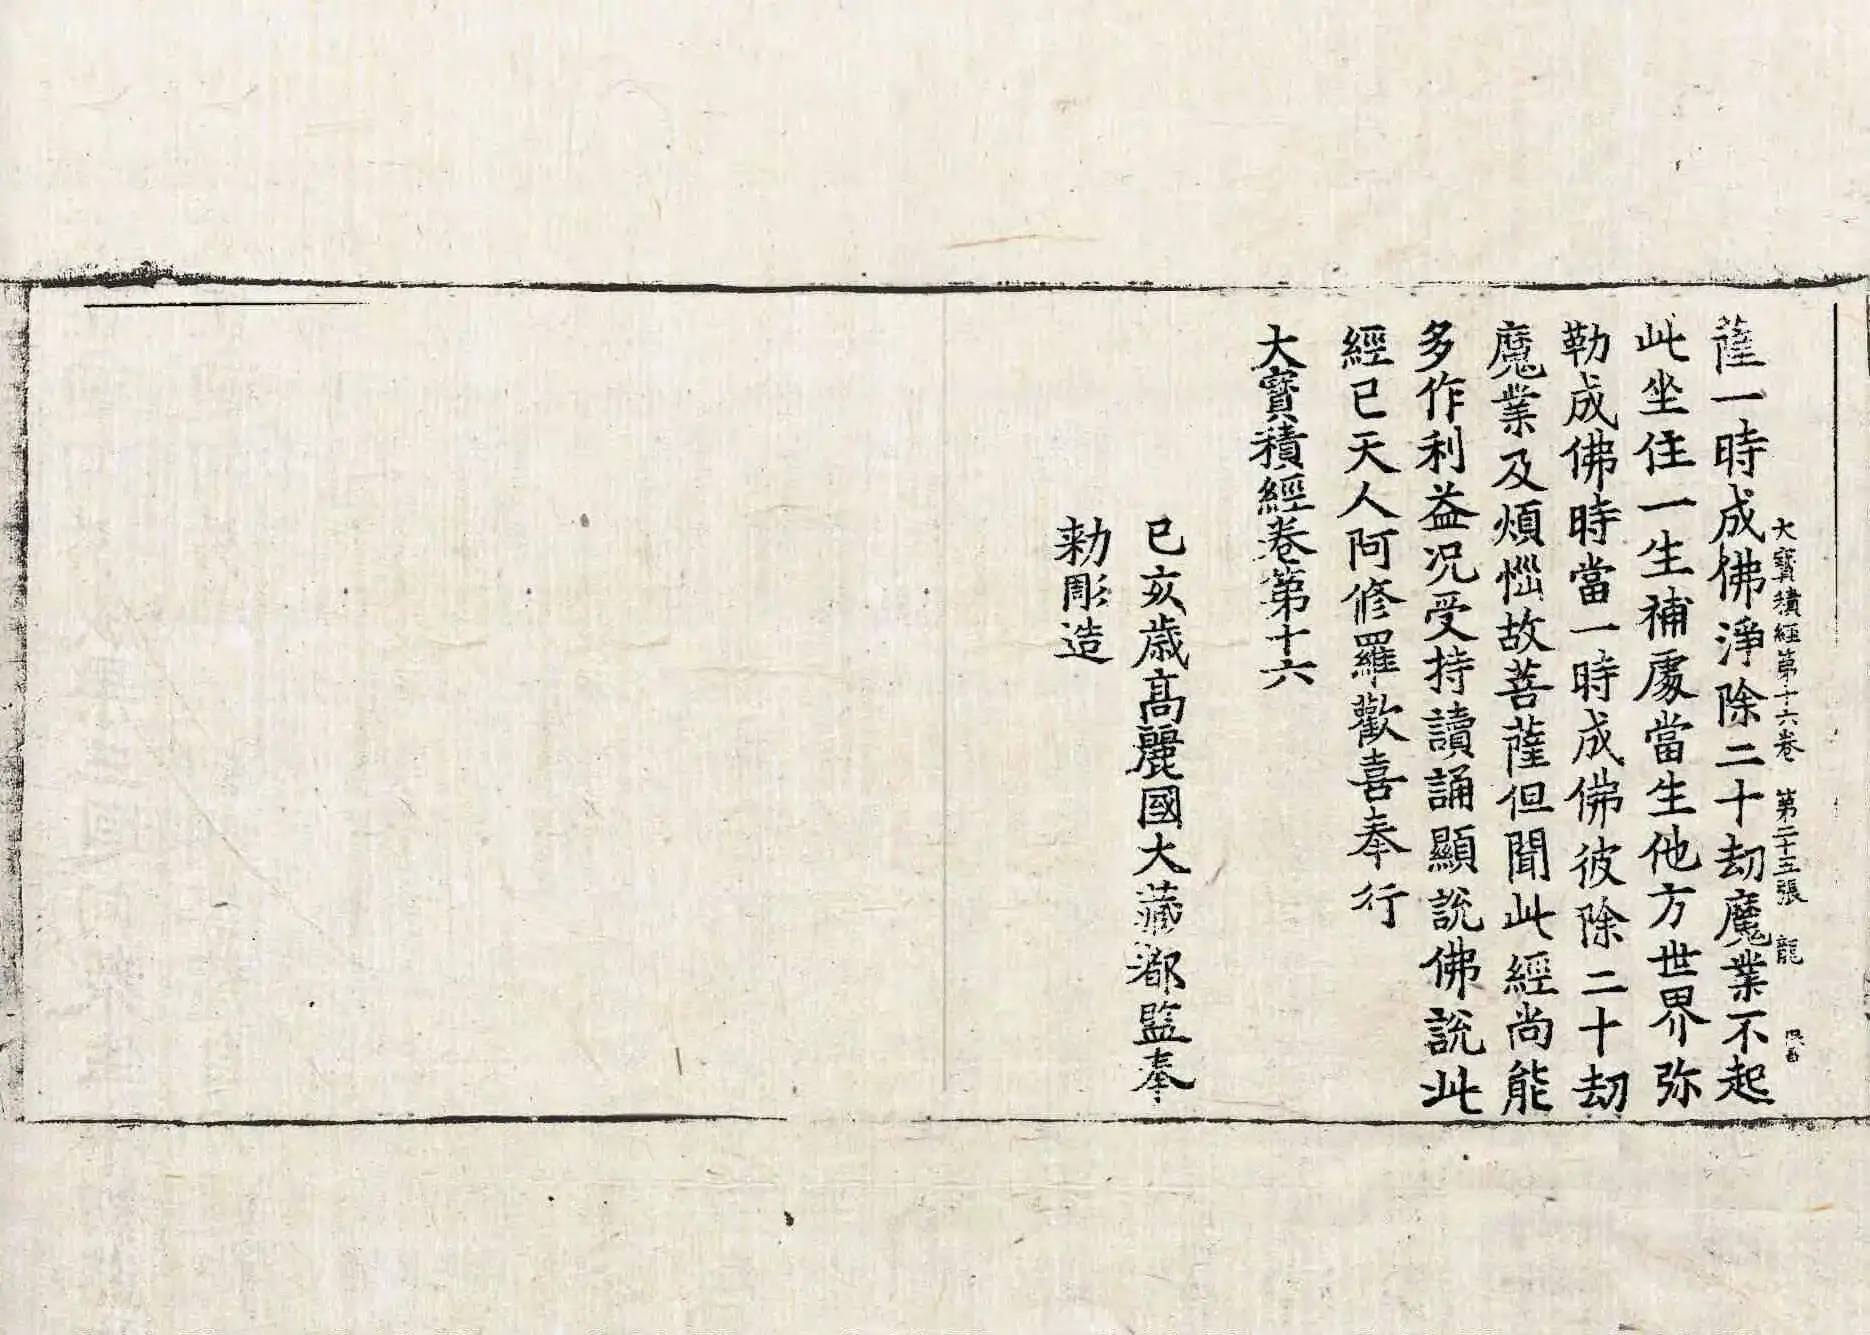 大寶積經第十六卷 第二十五張 龍
薩一時成佛淨除二十劫魔業不起
此坐住一生補處當生他方世界弥
勒成佛時當一時成佛彼除二十劫
魔業及煩惱故菩薩但聞此經尚能
多作利益况受持讀誦顯説佛説此
經已天人阿修羅歡喜奉行
大寳積經卷第十六
己亥歲高麗國大藏都監奉
勅彫造